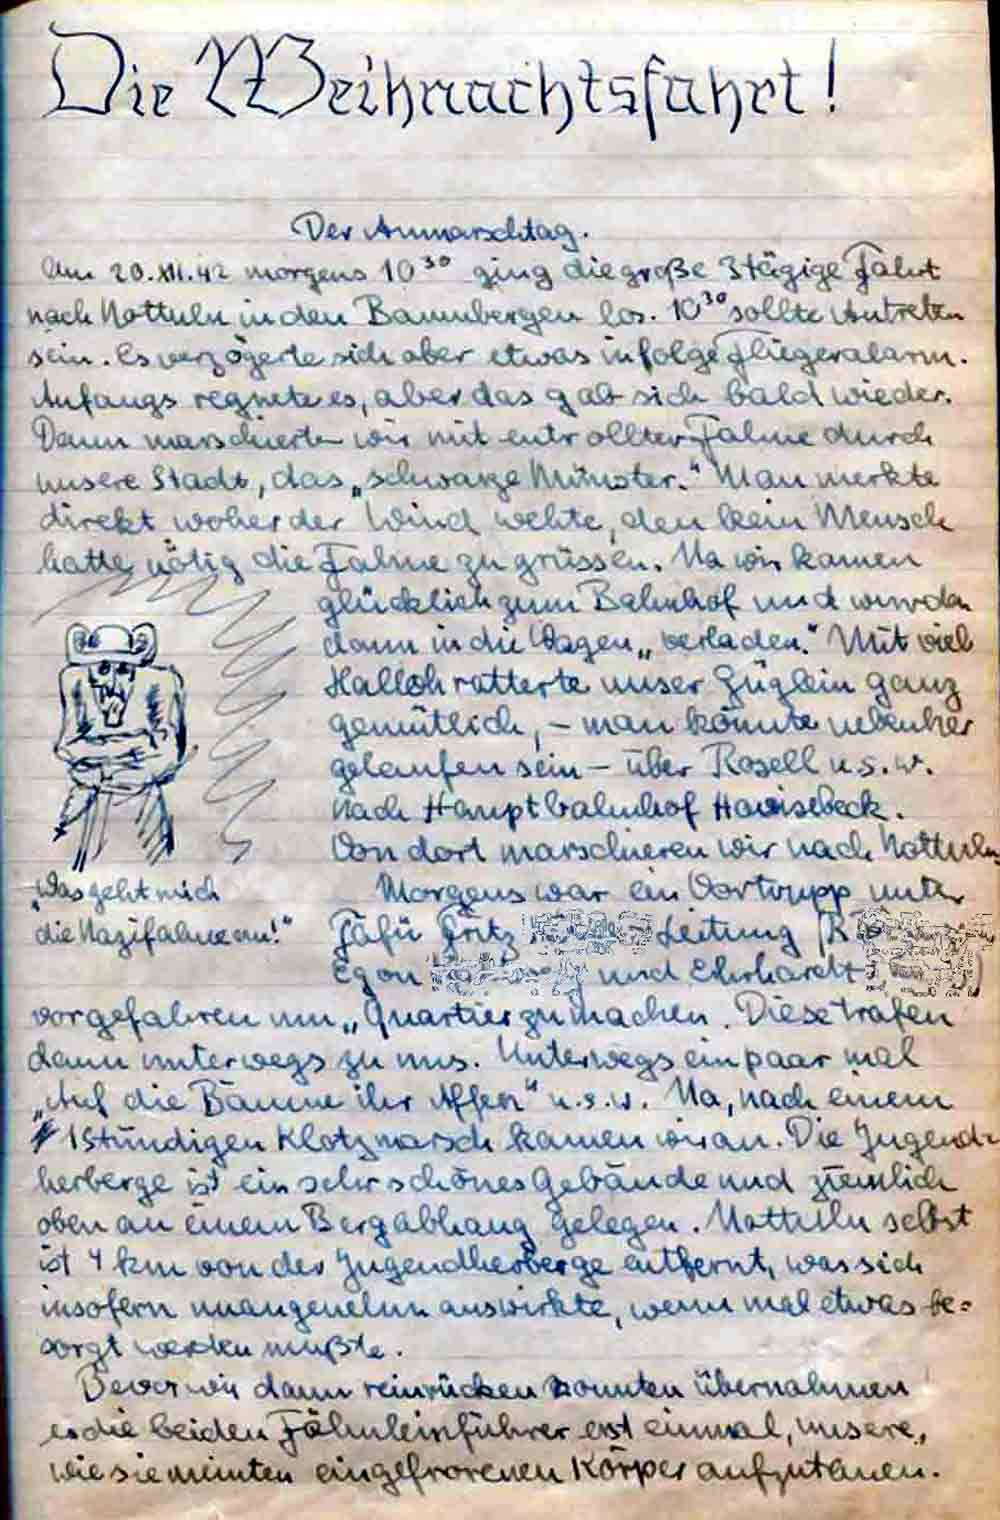 Die Weihnachtsfahrt!
Der Anmarschtag.
Am 20.XII.42 morgens 10³⁰ ging die große 3tägige Fahrt
nach Nottuln in den Baumbergen los. 10³⁰ sollte Antreten
sein. Es verzögerte sich aber etwas infolge Fliegeralarm.
Anfangs regnete es, aber das gab sich bald wieder.
Dann marschierten wir mit entrollter Fahne durch
unsere Stadt, das „schwarze Münster." Man merkte
direkt woher der Wind wehte, den kein Mensch
hatte nötig die Fahne zu grüssen. Na wir kamen
glücklich zum Bahnhof und wurden
dann in die Wagen „verladen." Mit viel
Halloh ratterte unser Züglein ganz
gemütlich, – man könnte nebenher
gelaufen sein – über Roxell u.s.w.
nach Hauptbahnhof Havisebeck.
Von dort marschieren wir nach Nottuln
Morgens war ein Vortrupp unter
„Was geht mich
die Nazifahne an!"
Fäfü Fritz Leitung (R
Egon und Ehrhardt )
vorgefahren um „Quartier zu machen. Diese trafen
dann unterwegs zu uns. Unterwegs ein paar mal
„Auf die Bäume ihr Affen" u.s.w. Na, nach einem
1stündigen Klotzmarsch kamen wir an. Die Jugend-
herberge ist ein sehr schönes Gebäude und ziemlich
oben an einem Bergabhang gelegen. Nottuln selbst
ist 4 km von der Jugendherberge entfernt, was sich
insofern unangenehm auswirkte, wenn mal etwas be-
sorgt werden mußte.
Bevor wir dann reinrücken konnten übernahmen
es die beiden Fähnleinführer erst einmal, unsere,
wie sie meinten eingefrorenen Körper aufzutauen.